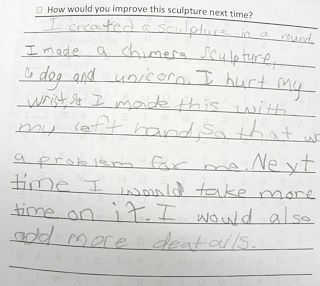 How would you improve this sculpture next time?
I created a sculpture in a round.
I made a chimera sculpture,
a dog and unicorn. I hurt my
wrist, so I made this with
my left hand, so that w
a problem for me. Next
time I would take more
time on it. I would also
add more deatails.